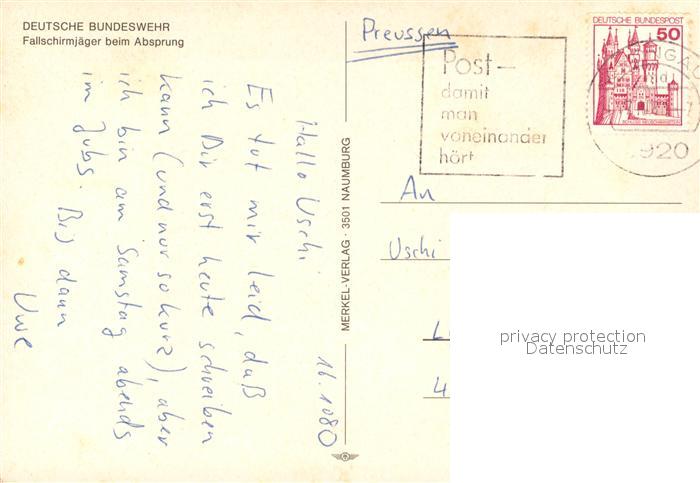 DEUTSCHE BUNDESWEHR
Fallschirmjäger beim Absprung
16.1080
Hallo Uschi
Es tut mir leid, daß
ich Dir erst heute schreiben
kann (und nur so kurz), aber
ich bin am Samstag abends
im Jubs. Bis dann
Uwe
MERKEL-VERLAG · 3501 NAUMBURG
Preussen
Post-
damit
man
voneinander
hört
DEUTSCHE BUNDESPOST
50
920
An
Uschi
L
4
privacy protection
Datenschutz